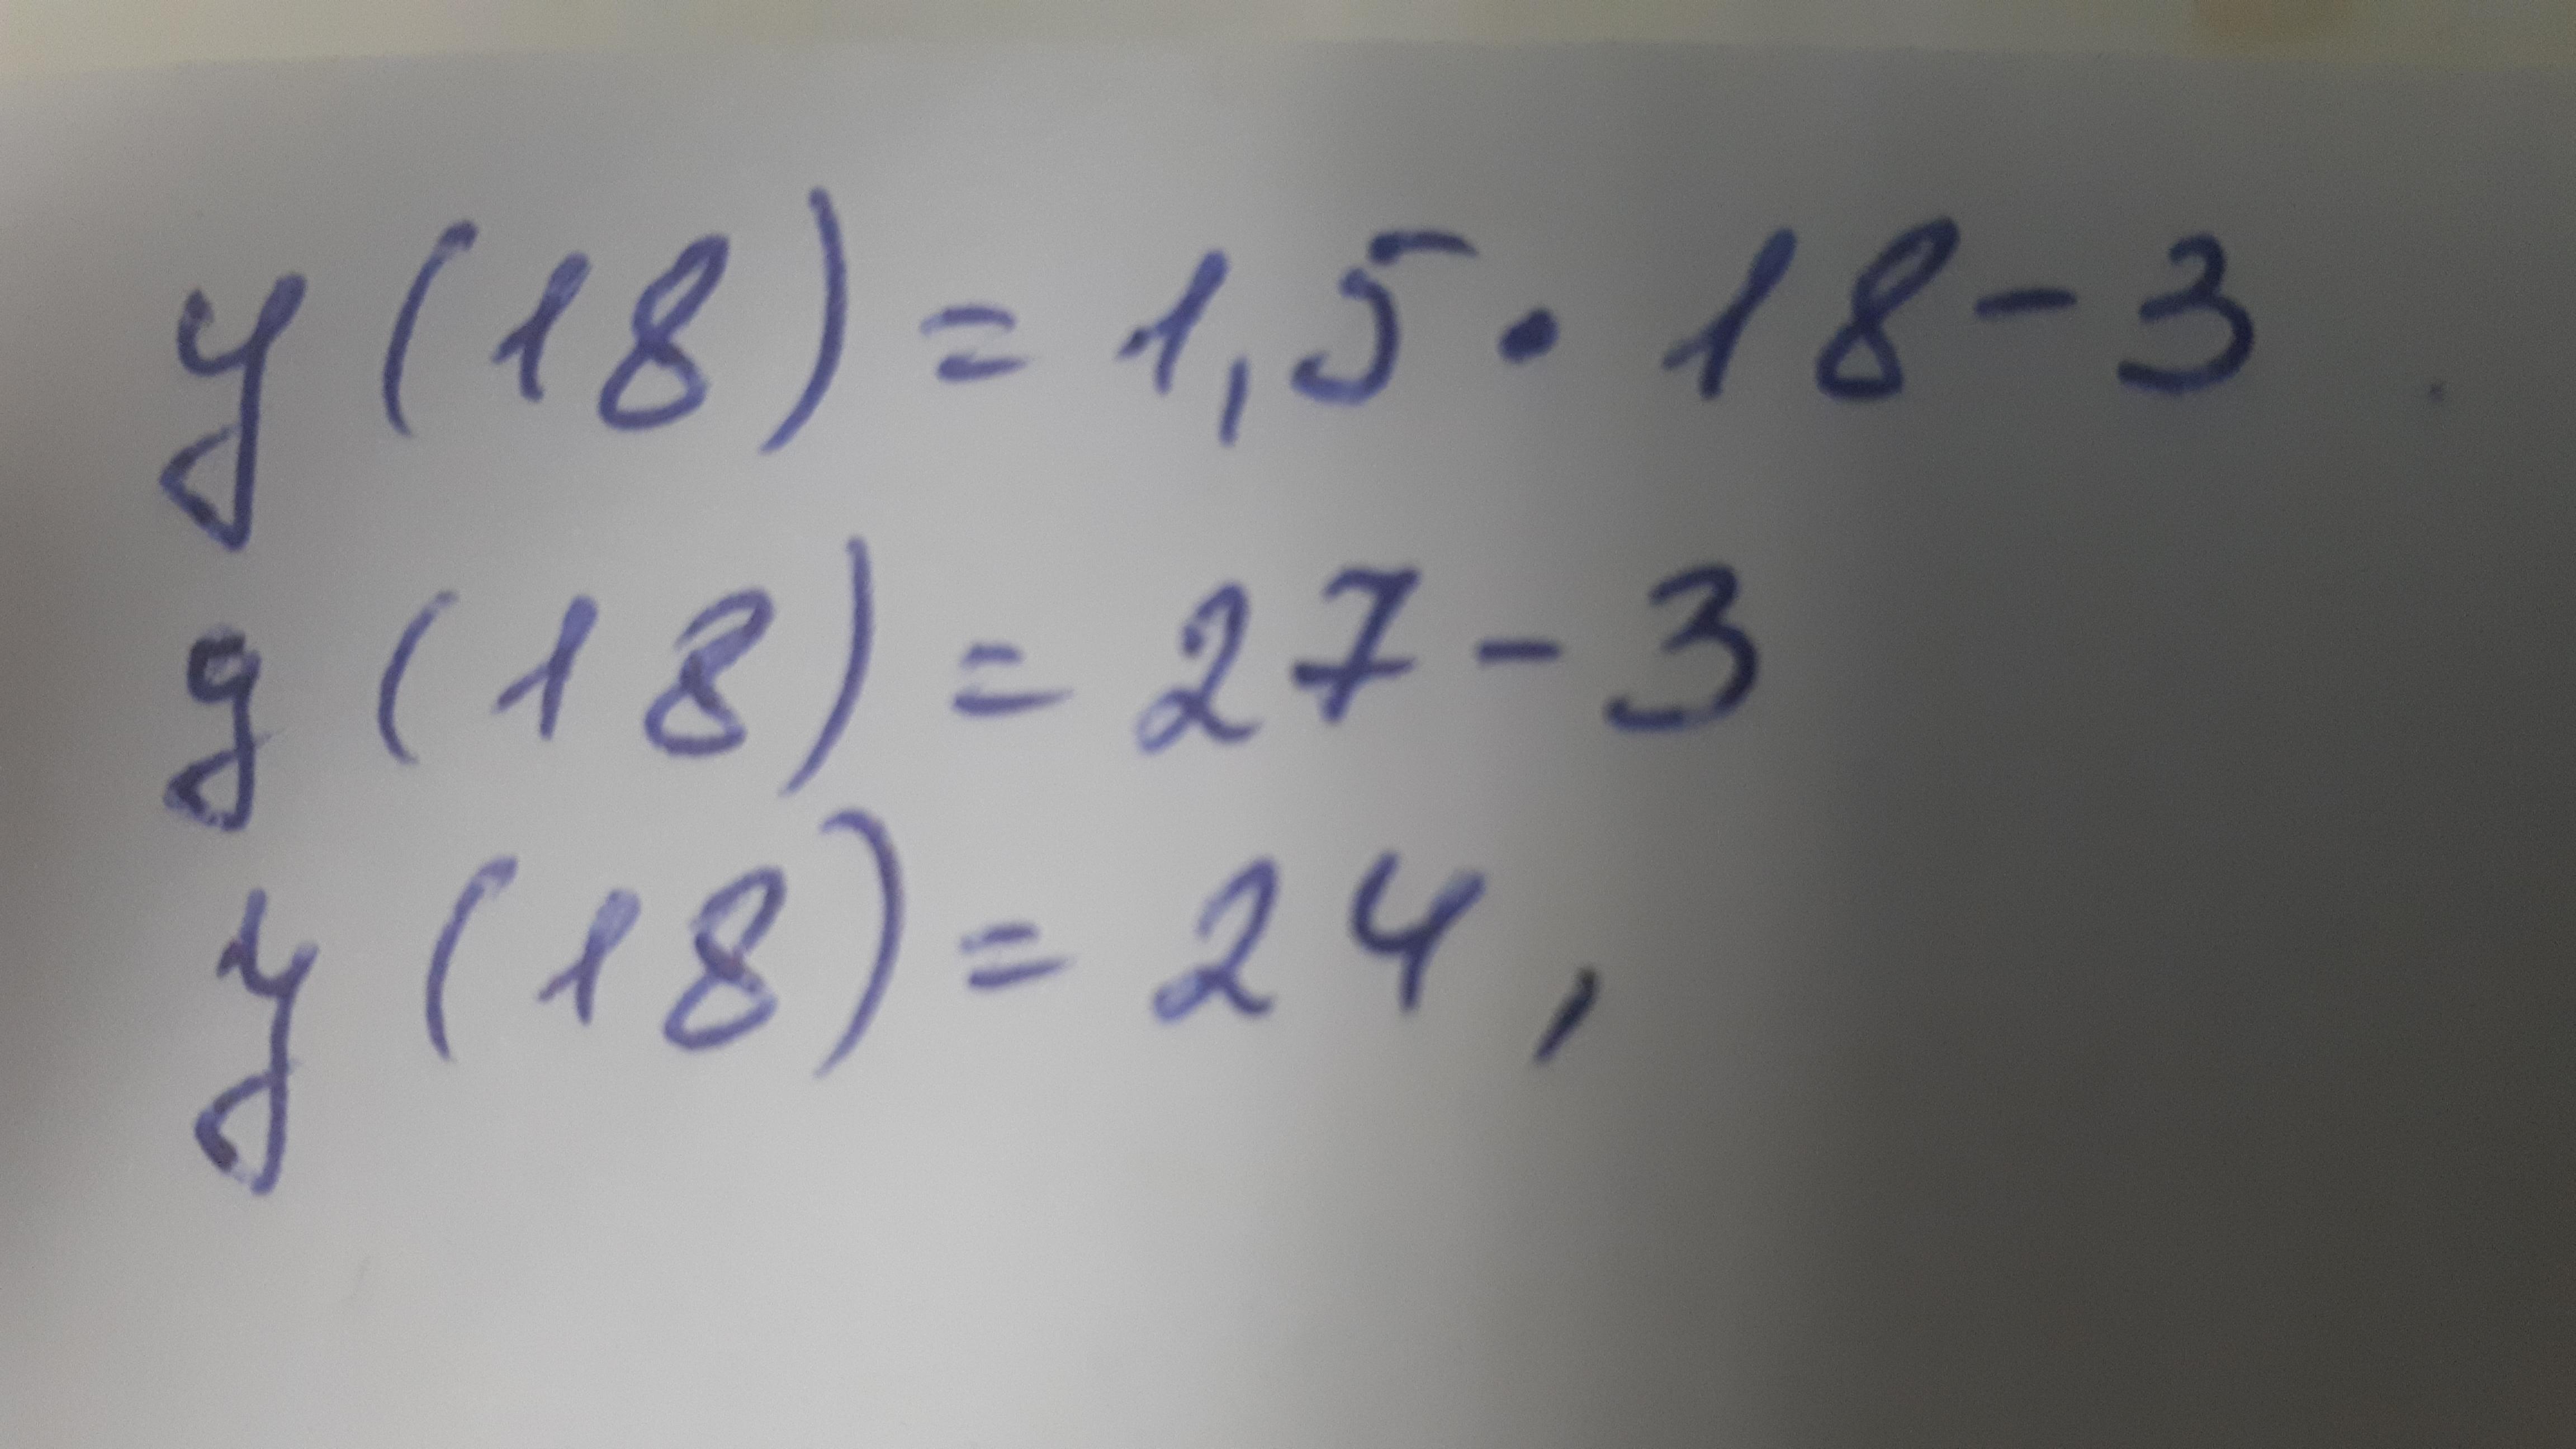 y(18) = 1,5 · 18 - 3
y(18) = 27 - 3
y(18) = 24,